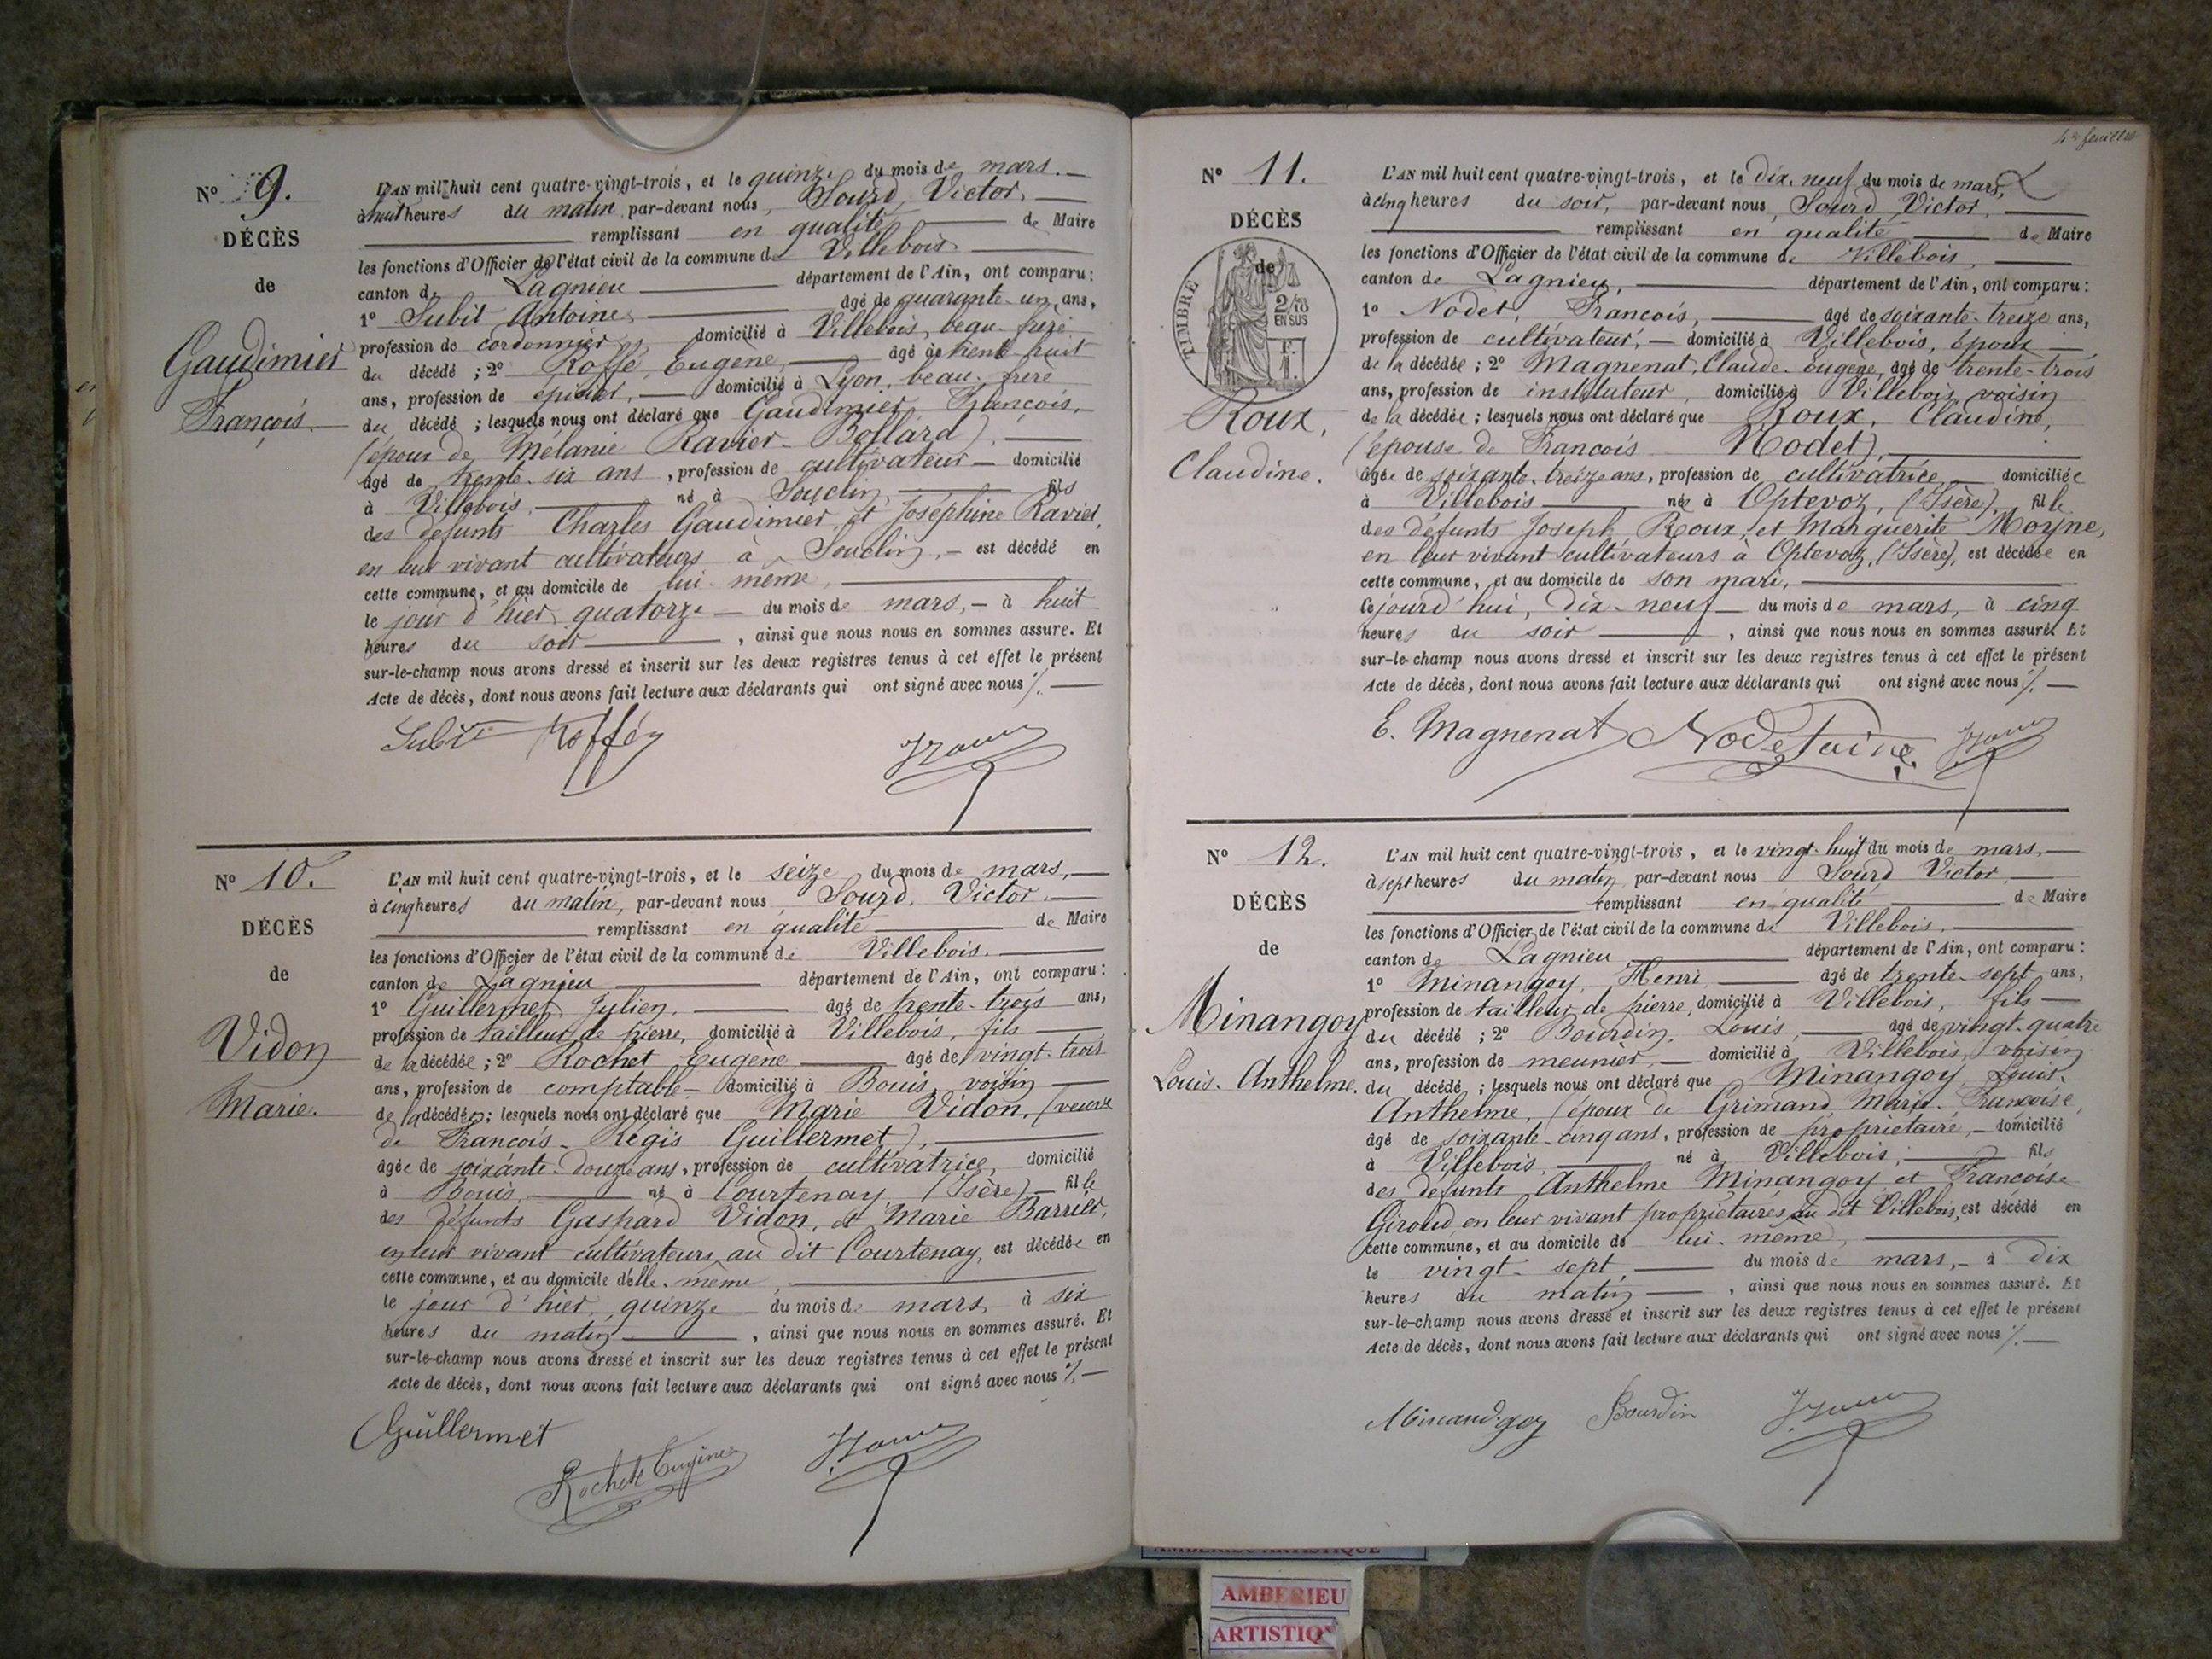 N° 9.
DÉCÈS
de
Gaudimier
François.
L'AN mil huit cent quatre-vingt-trois, et le quinze du mois de mars.
à huit heures du matin, par-devant nous, Sourd, Victor,
remplissant en qualité de Maire
les fonctions d'Officier de l'état civil de la commune de Villebois
canton de Lagnieu département de l'Ain, ont comparu:
1° Subit Antoine, âgé de quarante-un ans,
profession de cordonnier, domicilié à Villebois, beau-frère
du décédé; 2° Roffé, Eugène, âgé de trente-huit
ans, profession de épicier, domicilié à Lyon, beau-frère
du décédé; lesquels nous ont déclaré que Gaudimier, François,
(époux de Mélanie Ravier-Bollard),
âgé de trente-six ans, profession de cultivateur domicilié
à Villebois, né à Souclin, fils
des défunts Charles Gaudimier, et Joséphine Ravier,
en leur vivant cultivateurs à Souclin, est décédé en
cette commune, et au domicile de lui-même,
le jour d'hier, quatorze du mois de mars, à huit
heures du soir, ainsi que nous nous en sommes assuré. Et
sur-le-champ nous avons dressé et inscrit sur les deux registres tenus à cet effet le présent
Acte de décès, dont nous avons fait lecture aux déclarants qui ont signé avec nous ./.
Subit Roffé
N° 10.
DÉCÈS
de
Vidon
Marie.
L'AN mil huit cent quatre-vingt-trois, et le seize du mois de mars,
à cinq heures du matin, par-devant nous, Sourd, Victor,
remplissant en qualité de Maire
les fonctions d'Officier de l'état civil de la commune de Villebois.
canton de Lagnieu département de l'Ain, ont comparu:
1° Guillermet, Julien, âgé de trente-trois ans,
profession de tailleur de pierre, domicilié à Villebois, fils
de la décédée; 2° Rochet Eugène, âgé de vingt-trois
ans, profession de comptable domicilié à Bouis, voisin
de la décédée; lesquels nous ont déclaré que Marie Vidon, (veuve
de François-Régis Guillermet),
âgée de soixante-douze ans, profession de cultivatrice, domicilié
à Bouis, né à Courtenay (Isère) fille
des défunts Gaspard Vidon, et Marie Barrier,
en leur vivant cultivateurs au dit Courtenay, est décédée en
cette commune, et au domicile d'elle-même,
le jour d'hier, quinze du mois de mars, à six
heures du matin, ainsi que nous nous en sommes assuré. Et
sur-le-champ nous avons dressé et inscrit sur les deux registres tenus à cet effet le présent
Acte de décès, dont nous avons fait lecture aux déclarants qui ont signé avec nous ./.
Guillermet
Rochet Eugène
4e feuillet
N° 11.
DÉCÈS
de
TIMBRE
2/10
EN SUS
Roux,
Claudine.
L'AN mil huit cent quatre-vingt-trois, et le dix-neuf du mois de mars,
à cinq heures du soir, par-devant nous, Sourd, Victor,
remplissant en qualité de Maire
les fonctions d'Officier de l'état civil de la commune de Villebois,
canton de Lagnieu, département de l'Ain, ont comparu:
1° Nodet, François, âgé de soixante-treize ans,
profession de cultivateur, domicilié à Villebois, époux
de la décédée; 2° Magnenat, Claude-Eugène, âgé de trente-trois
ans, profession de instituteur, domicilié à Villebois, voisin
de la décédée; lesquels nous ont déclaré que Roux, Claudine,
(épouse de François Nodet),
âgée de soixante-treize ans, profession de cultivatrice domiciliée
à Villebois née à Optevoz, (Isère), fille
des défunts Joseph Roux, et Marguerite Moyne,
en leur vivant cultivateurs à Optevoz, (Isère), est décédée en
cette commune, et au domicile de son mari,
cejourd'hui, dix-neuf du mois de mars, à cinq
heures du soir, ainsi que nous nous en sommes assuré. Et
sur-le-champ nous avons dressé et inscrit sur les deux registres tenus à cet effet le présent
Acte de décès, dont nous avons fait lecture aux déclarants qui ont signé avec nous ./.
E. Magnenat
N° 12.
DÉCÈS
de
Minangoy
Louis-Anthelme.
L'AN mil huit cent quatre-vingt-trois, et le vingt-huit du mois de mars,
à sept heures du matin, par-devant nous Sourd Victor,
remplissant en qualité de Maire
les fonctions d'Officier de l'état civil de la commune de Villebois.
canton de Lagnieu département de l'Ain, ont comparu:
1° Minangoy, Henri, âgé de trente-sept ans,
profession de tailleur de pierre, domicilié à Villebois, fils
du décédé; 2° Bourdin, Louis, âgé de vingt-quatre
ans, profession de meunier, domicilié à Villebois, voisin
du décédé; lesquels nous ont déclaré que Minangoy Louis-
Anthelme, (époux de Grimand, Marie-Françoise,
âgé de soixante-cinq ans, profession de propriétaire, domicilié
à Villebois, né à Villebois, fils
des défunts Anthelme Minangoy et Françoise
Giroud en leur vivant propriétaires au dit Villebois, est décédé en
cette commune, et au domicile de lui-même,
le vingt-sept du mois de mars, à dix
heures du matin, ainsi que nous nous en sommes assuré. Et
sur-le-champ nous avons dressé et inscrit sur les deux registres tenus à cet effet le présent
Acte de décès, dont nous avons fait lecture aux déclarants qui ont signé avec nous ./.
Minandgoy Bourdin
AMBERIEU ARTISTIQUE
AMBERIEU
ARTISTIQ